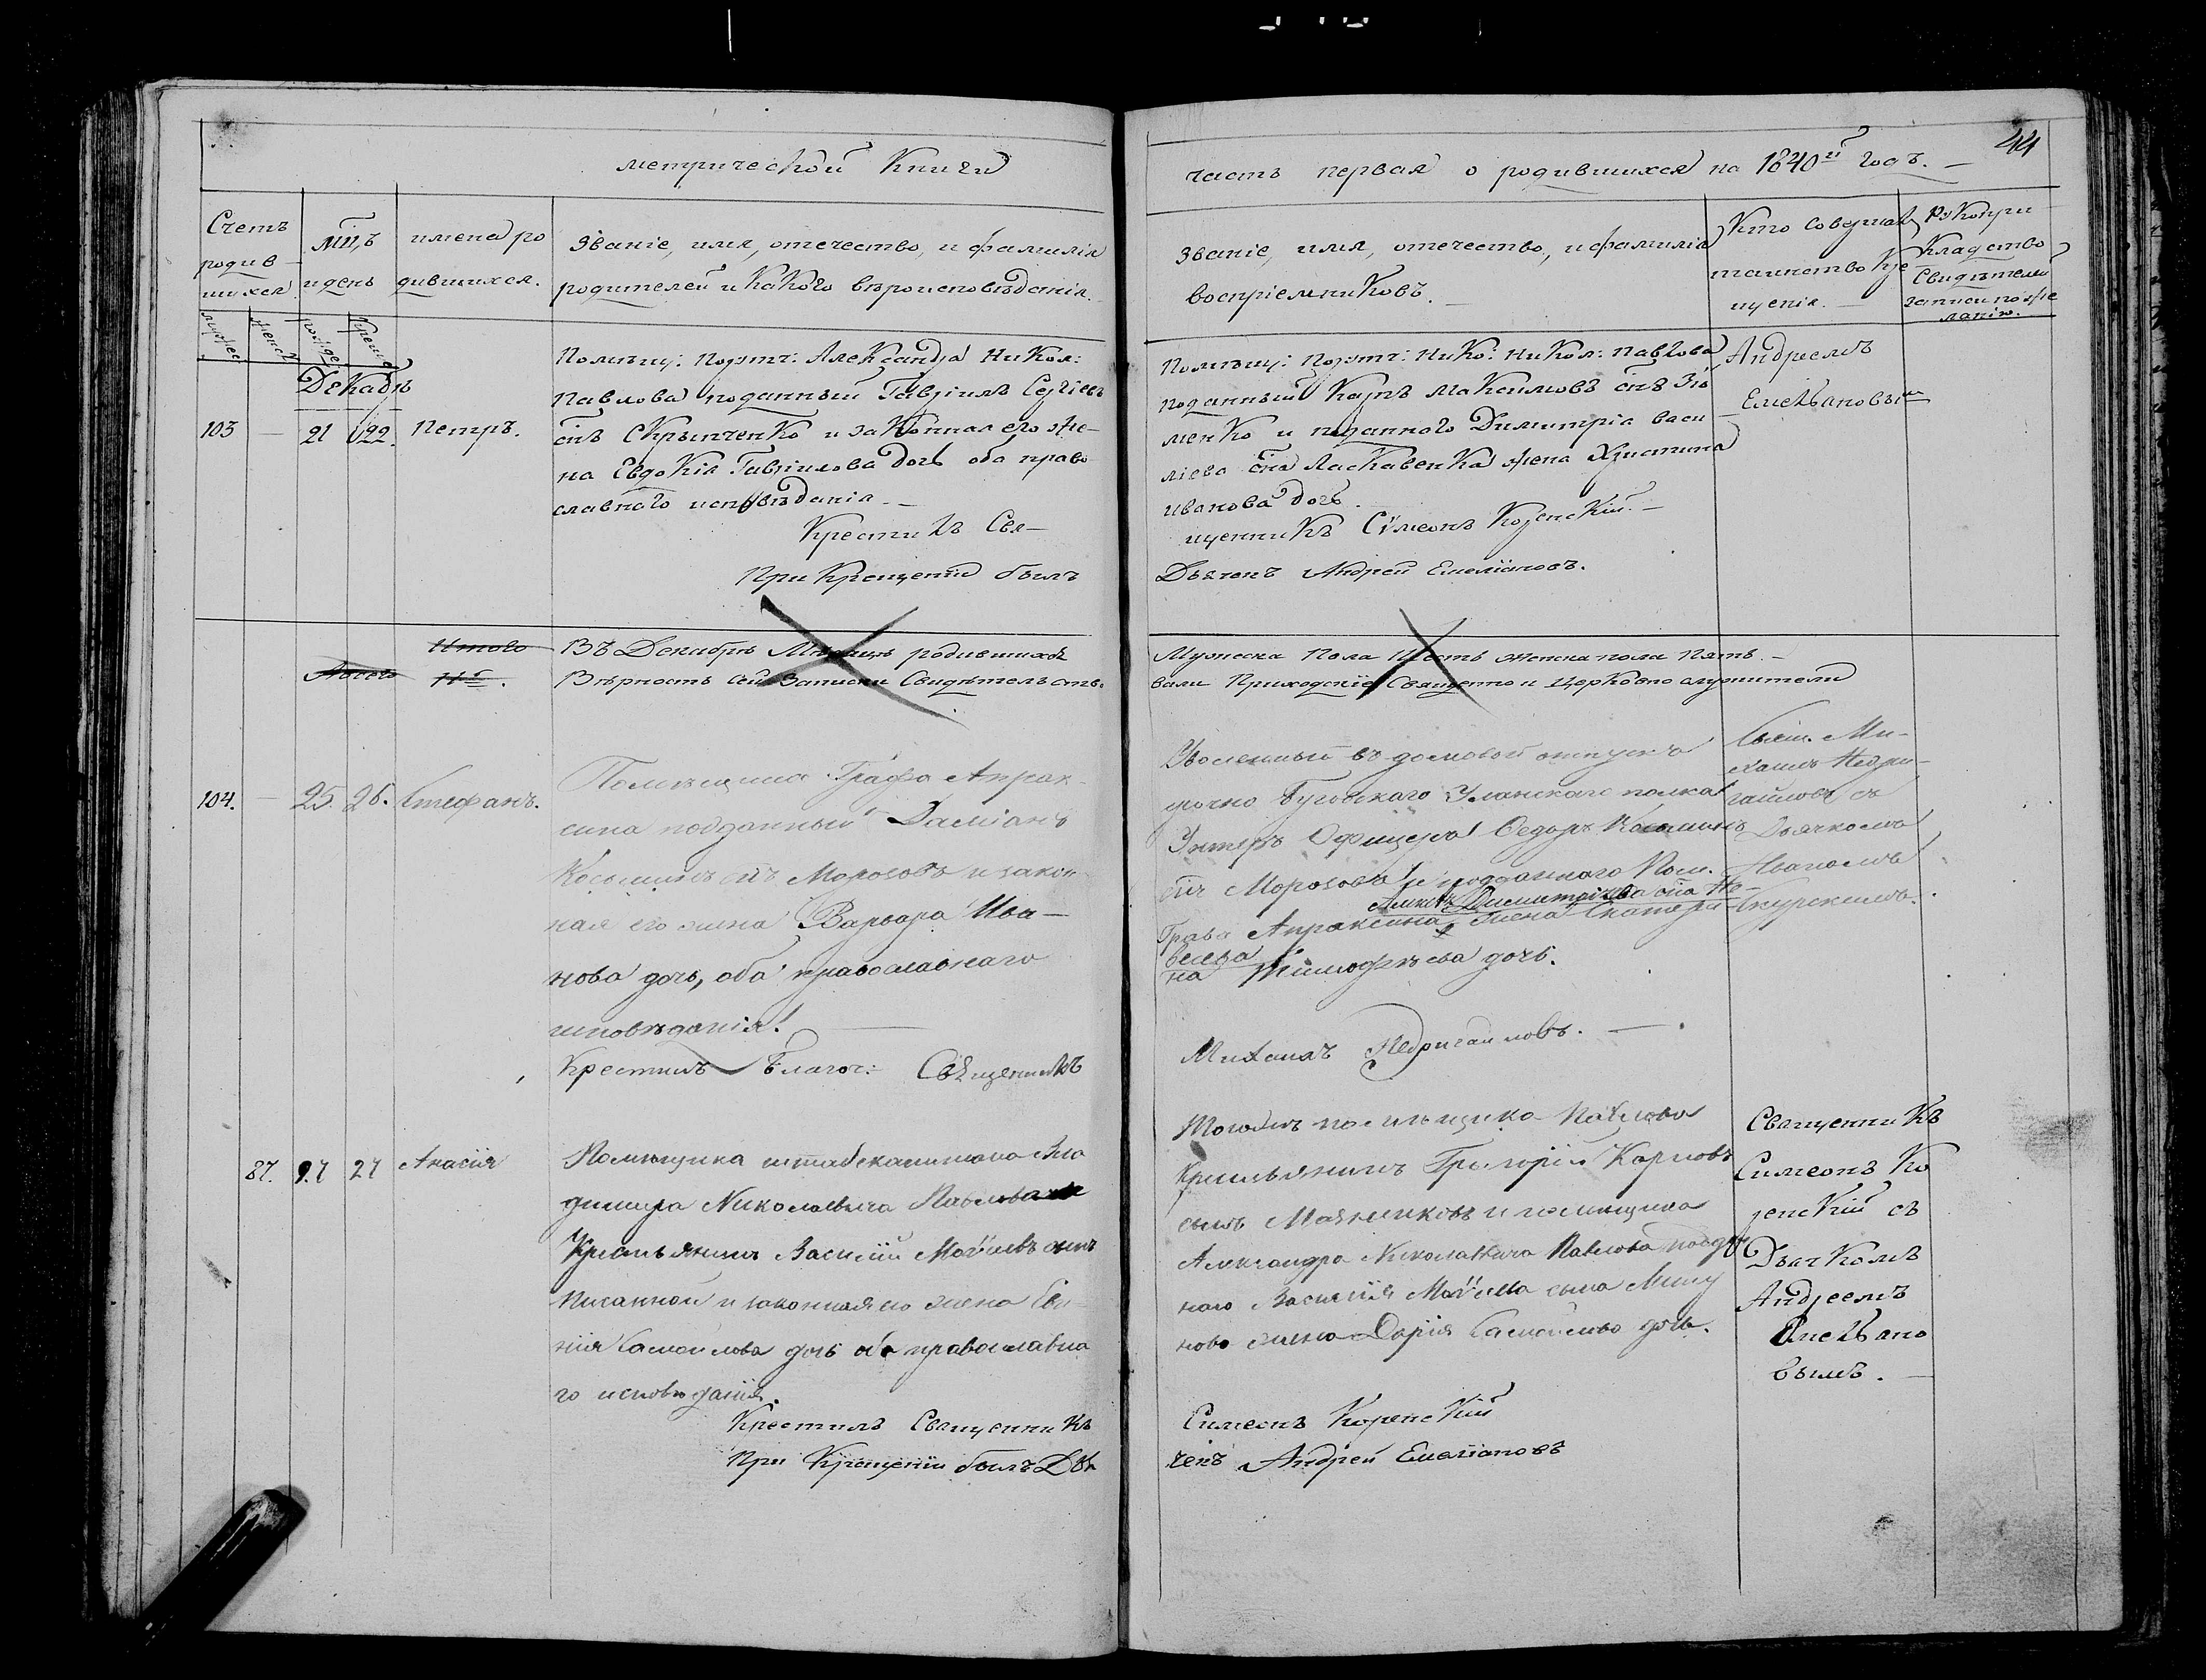 метрической Книги
часть первая о родившихся на 1840й годъ. —
44
Счетъ родив шихся
мцъ и день
имена ро дившихся.
Званіе, имя, отечество, и фамилія
родителей и какого вѣроисповѣданія.
Званіе, имя, отечество, и фамилія
воспріемниковъ. —
Кто совершалъ
таинство Кре
щенія. —
Рукопри
кладство
Свидѣтелей
записи по же
ланію.
Декабрь
103 — 21 22. Петръ.
Помѣщ: Порт: Александра Никол:
Павлова подданный Гавріилъ Сергіевъ
снъ Скрыпченко и законная его же-
на Евдокія Гавріилова дочь оба право
славного исповѣданія. —
Крестилъ Свя—
При Крещеніи былъ
Помѣщ: Порт: Нико: Никол: Павлова
подданный Карпъ Максимовъ снъ Зѣ
менко и подданного Димитрія Васи
ліева сна Ласкавенка жена Христина
Иванова дочь.
щенникъ Сѵмеонъ Коренскій. —
Дьячекъ Андрей Емеліановъ.
Андреемъ
Емельяновым
Итого
Въ Декабрѣ Мѣсяцѣ родившихся
Вѣрность сей Записки Свидѣтельство-
Мужеска Пола Шесть женска пола Пять. —
вали Приходскіе Священно и Церковно служители
104. — 25. 26. Стефанъ.
Помѣщика Графа Апрак-
сина подданный Даміанъ
Косьминъ снъ Морозовъ и закон
ная его жена Варвара Ива—
нова дочь, оба православнаго
исповѣданія.
Крестилъ Благоч: Священникъ
Уволенный въ домовой отпускъ
срочно Бугского Уланскаго полка
Унтеръ Офицеръ Федоръ Косьминъ
снъ Морозовъ и подданного Пом.
Графа Апраксина Димитріева сна Не-
жена Екатери
на Тимофѣева дочь.
Михаилъ Недригайловъ. —.
Свящ. Ми-
хаилъ Недри-
гайловъ съ
Дьячкомъ
Иваномъ
87. 27 27 Анасія
Помѣщика штабскапитана Вла
димира Николаевича Павлова
Крестьянинъ Василій Моѵсіевъ сынъ
Писанной и законная его жена Ев
нія Самойлова дочь оба православна
го исповѣданія.
Крестилъ Священникъ
При Крещеніи былъ Дья
Тогожъ помѣщика Павлова
Крестьянинъ Григорій Карповъ
сынъ Маяниковъ и помѣщика
Александра Николаевича Павлова поддан
наго Василія Моѵсіева сына
жена Дарія Самойлова дочь.
Симеонъ Коренскій
чекъ Андрей Емеліановъ
Священникъ
Симеонъ Ко
ренскій съ
Дьячкомъ
Андреемъ
Емельяно
вымъ. —